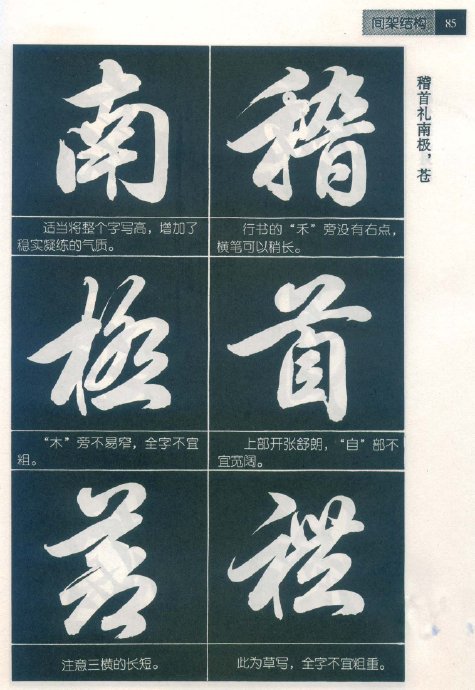 间架结构 85
稽首礼南极，苍
稽
行书的“禾”旁没有右点，
横笔可以稍长。
首
上部开张舒朗，“自”部不
宜宽阔。
禮
此为草写，全字不宜粗重。
南
适当将整个字写高，增加了
稳实凝练的气质。
極
“木”旁不易窄，全字不宜
粗。
蒼
注意三横的长短。